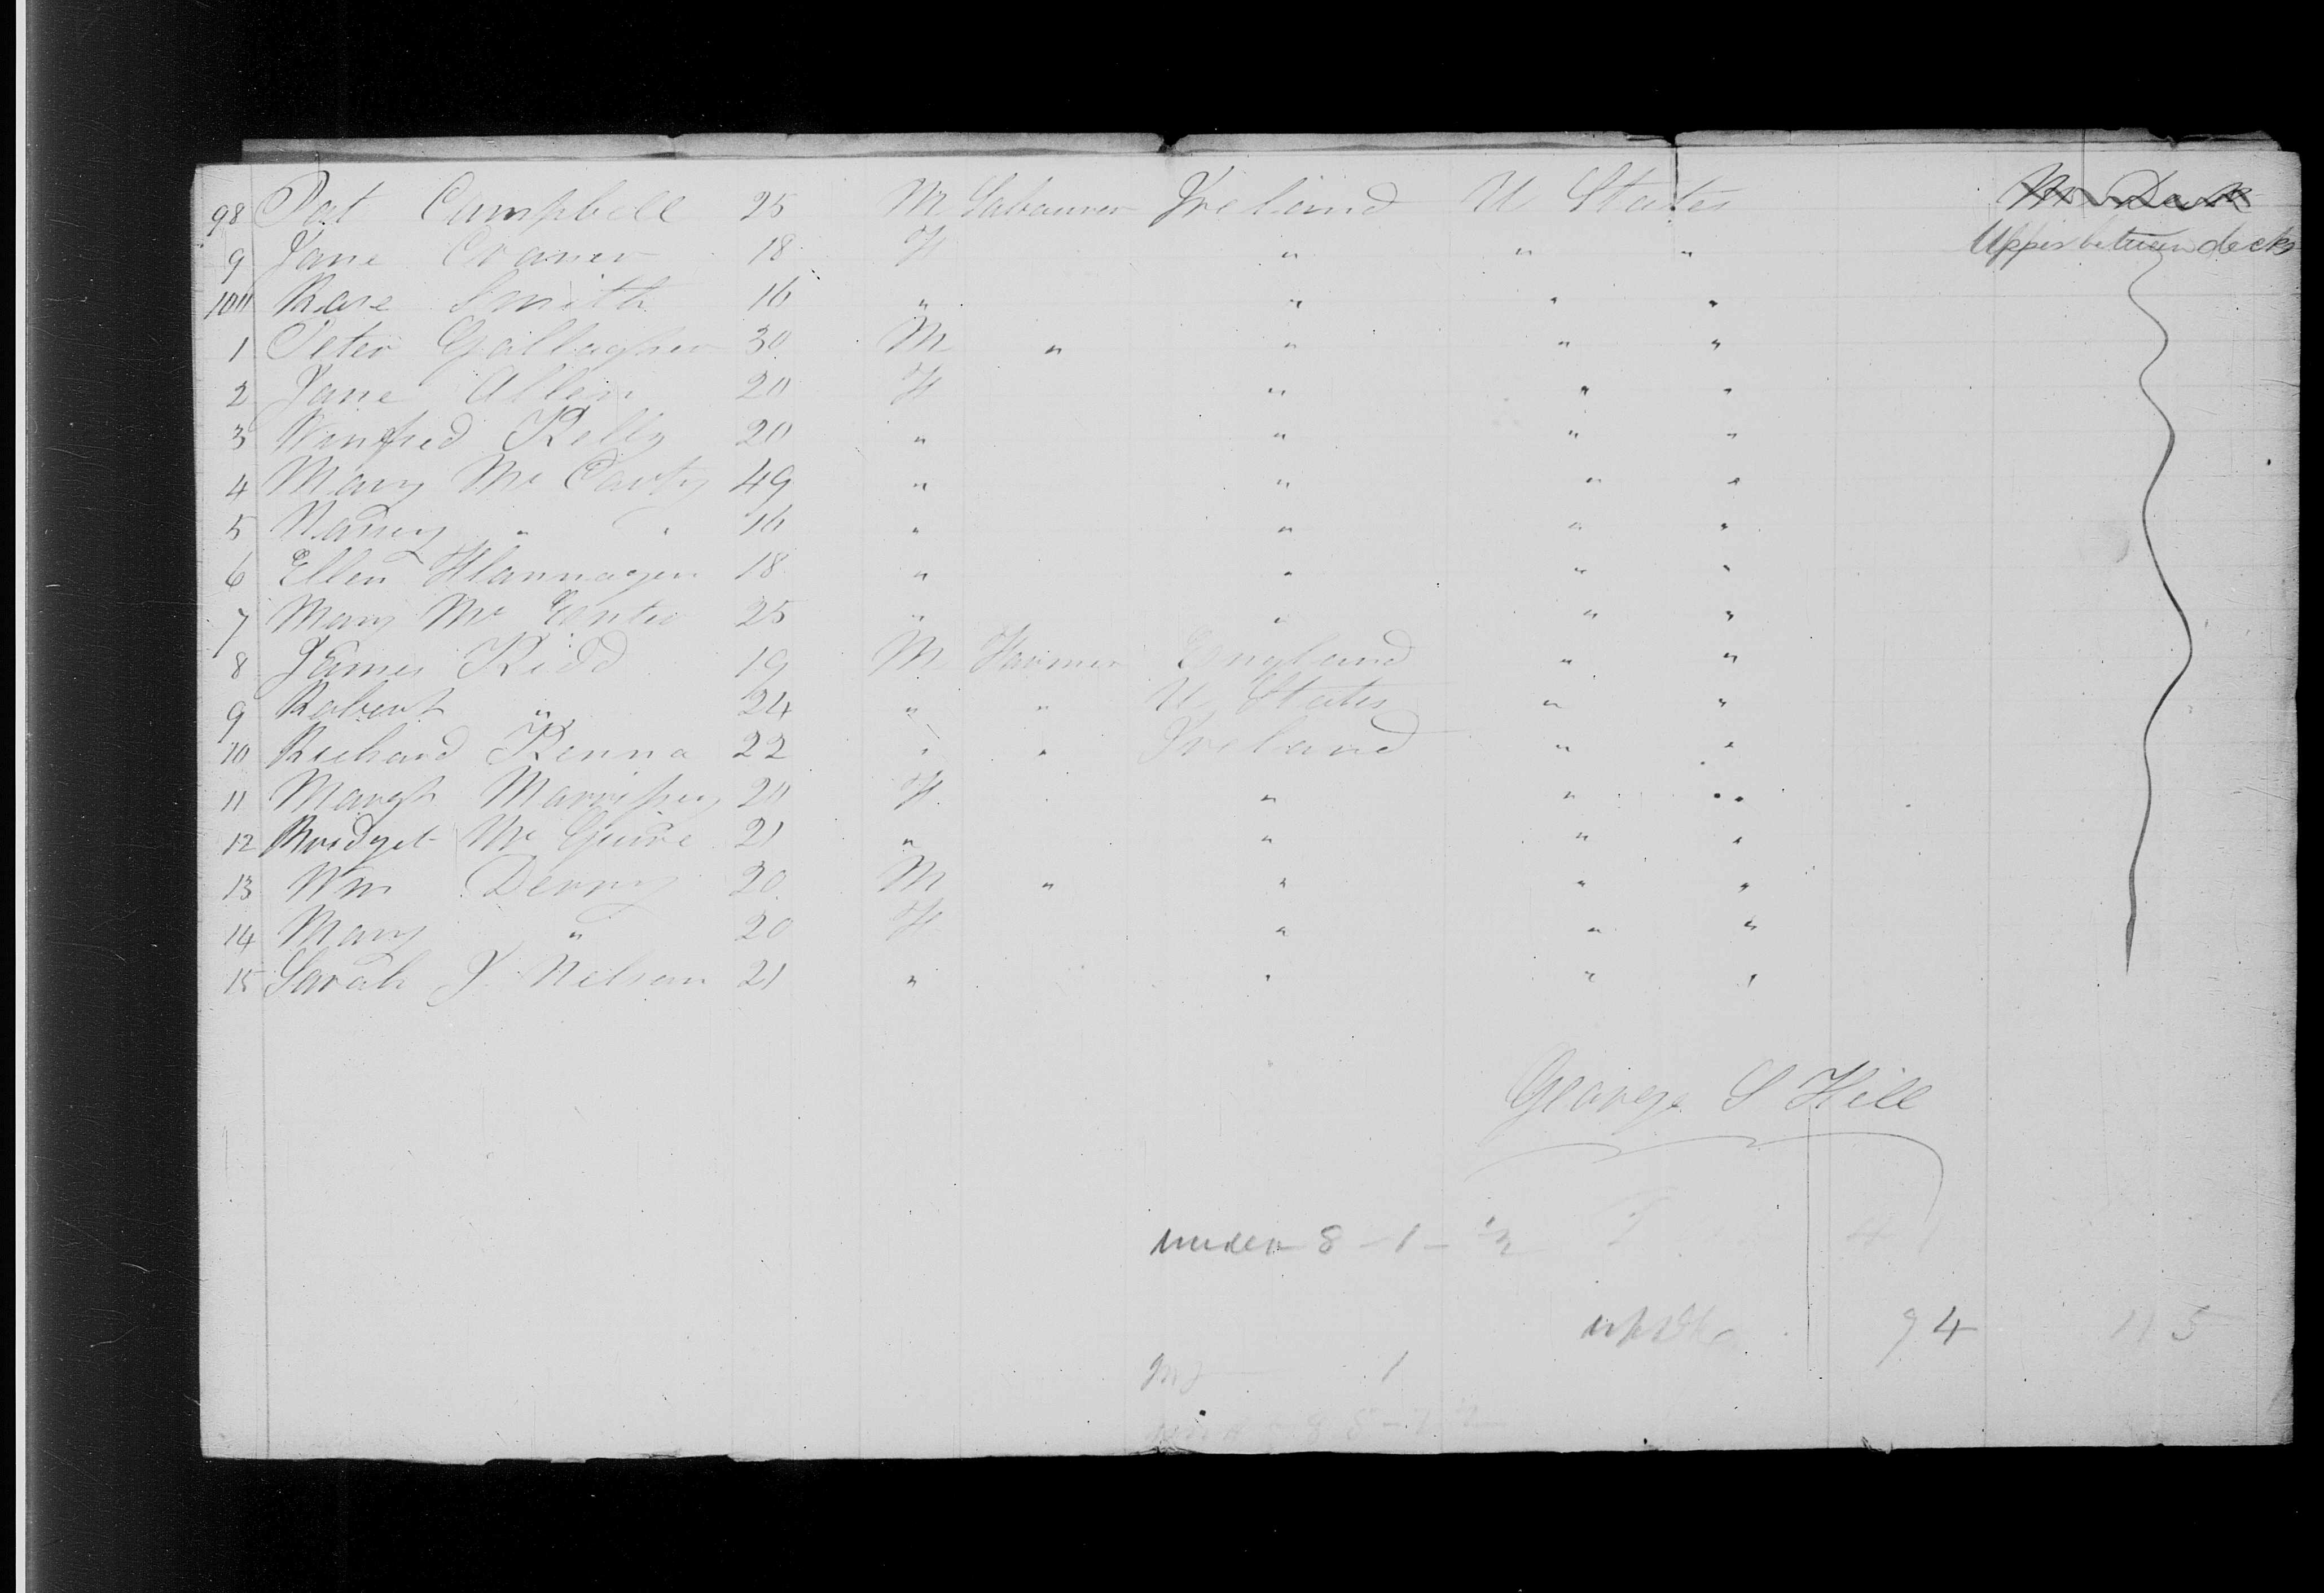 98 Pat Campbell 25 M Labourer Ireland U States
9 Jane Cranen 18 F " " " Upper between decks
100 Rose Smith 16 " " " "
1 Peter Gallagher 30 M " " " "
2 Jane Allen 20 F " " "
3 Winfred Kelly 20 " " " "
4 Mary Mc Carty 49 " " " "
5 Nancy " " 16 " " " "
6 Ellen Flannagen 18 " " " "
7 Mary Mc Enter 25 " " " "
8 James Kidd 19 M Farmer England " "
9 Robert " 24 " " U States " "
10 Richard Kenna 22 " " Ireland " "
11 Margt Morrissey 20 F " " "
12 Bridget Mc Guire 21 " " " "
13 Wm Denny 20 M " " " "
14 Mary " 20 F " " "
15 Sarah J Nelson 21 " " " "
George S Hill
under 8 - 1 -
94 115
1